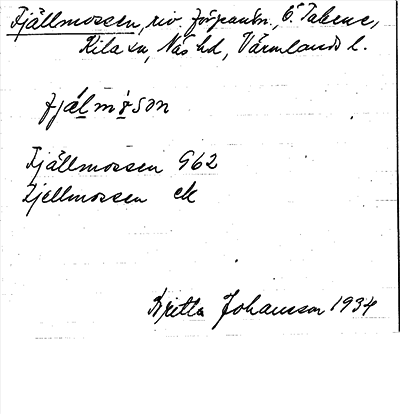 Fjällmossen, riv. torplägenh., Ö Takene,
Kila sn, Näs hd, Värmlands l.
fjälmɵsən
Fjällmossen G62
Fjellmossen ek
Britta Johansson 1934